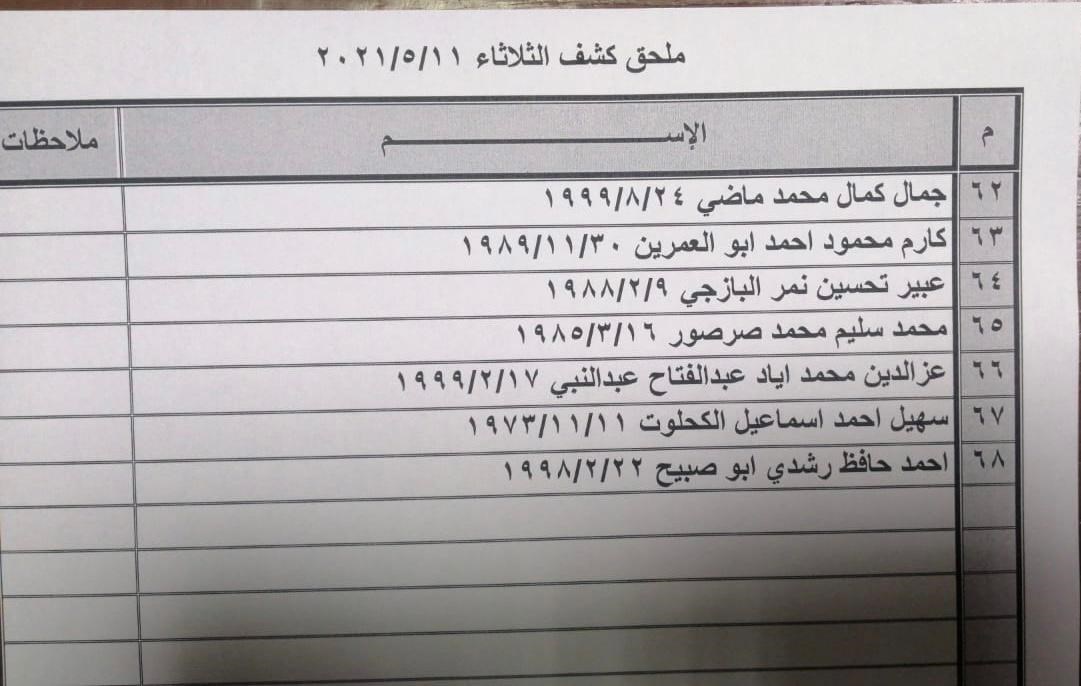 ملحق كشف الثلاثاء ٢٠٢١/٥/١١
م الإســـــم ملاحظات
٦٢ جمال كمال محمد ماضي ١٩٩٩/٨/٢٤
٦٣ كارم محمود احمد ابو العمرين ١٩٨٩/١١/٣٠
٦٤ عبير تحسين نمر البازجي ١٩٨٨/٢/٩
٦٥ محمد سليم محمد صرصور ١٩٨٥/٣/١٦
٦٦ عزالدين محمد اياد عبدالفتاح عبدالنبي ١٩٩٩/٢/١٧
٦٧ سهيل احمد اسماعيل الكحلوت ١٩٧٣/١١/١١
٦٨ احمد حافظ رشدي ابو صبيح ١٩٩٨/٢/٢٢